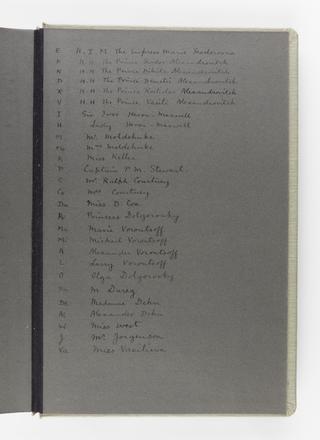 E H.I.M. The Empress Marie Feodorovna
H.H. The Prince Feodor Alexandrovitch
N H.H. The Prince Nikita Alexandrovitch
D H.H. The Prince Dmitri Alexandrovitch
X H.H. The Prince Rostislav Alexandrovitch
V H.H. The Prince Vasili Alexandrovitch
I Sir Ivor Heron-Maxwell
H Lady Heron-Maxwell
M Mr. Moldehnke
Mrs Moldehnke
K Miss Keller
P Captain P. M. Stewart
C Mr. Ralph Courtney
Co Mrs Courtney
Miss D. Cox
Princess Dolgorouky
Ma Marie Vorontsoff
Mi Michael Vorontsoff
A Alexander Vorontsoff
L Larry Vorontsoff
O Olga Dolgorouky
M.
De Madame Dehn
Al Alexander Dehn
W Miss West
J Mr. Jorgenson
Va Miss Vasilieva